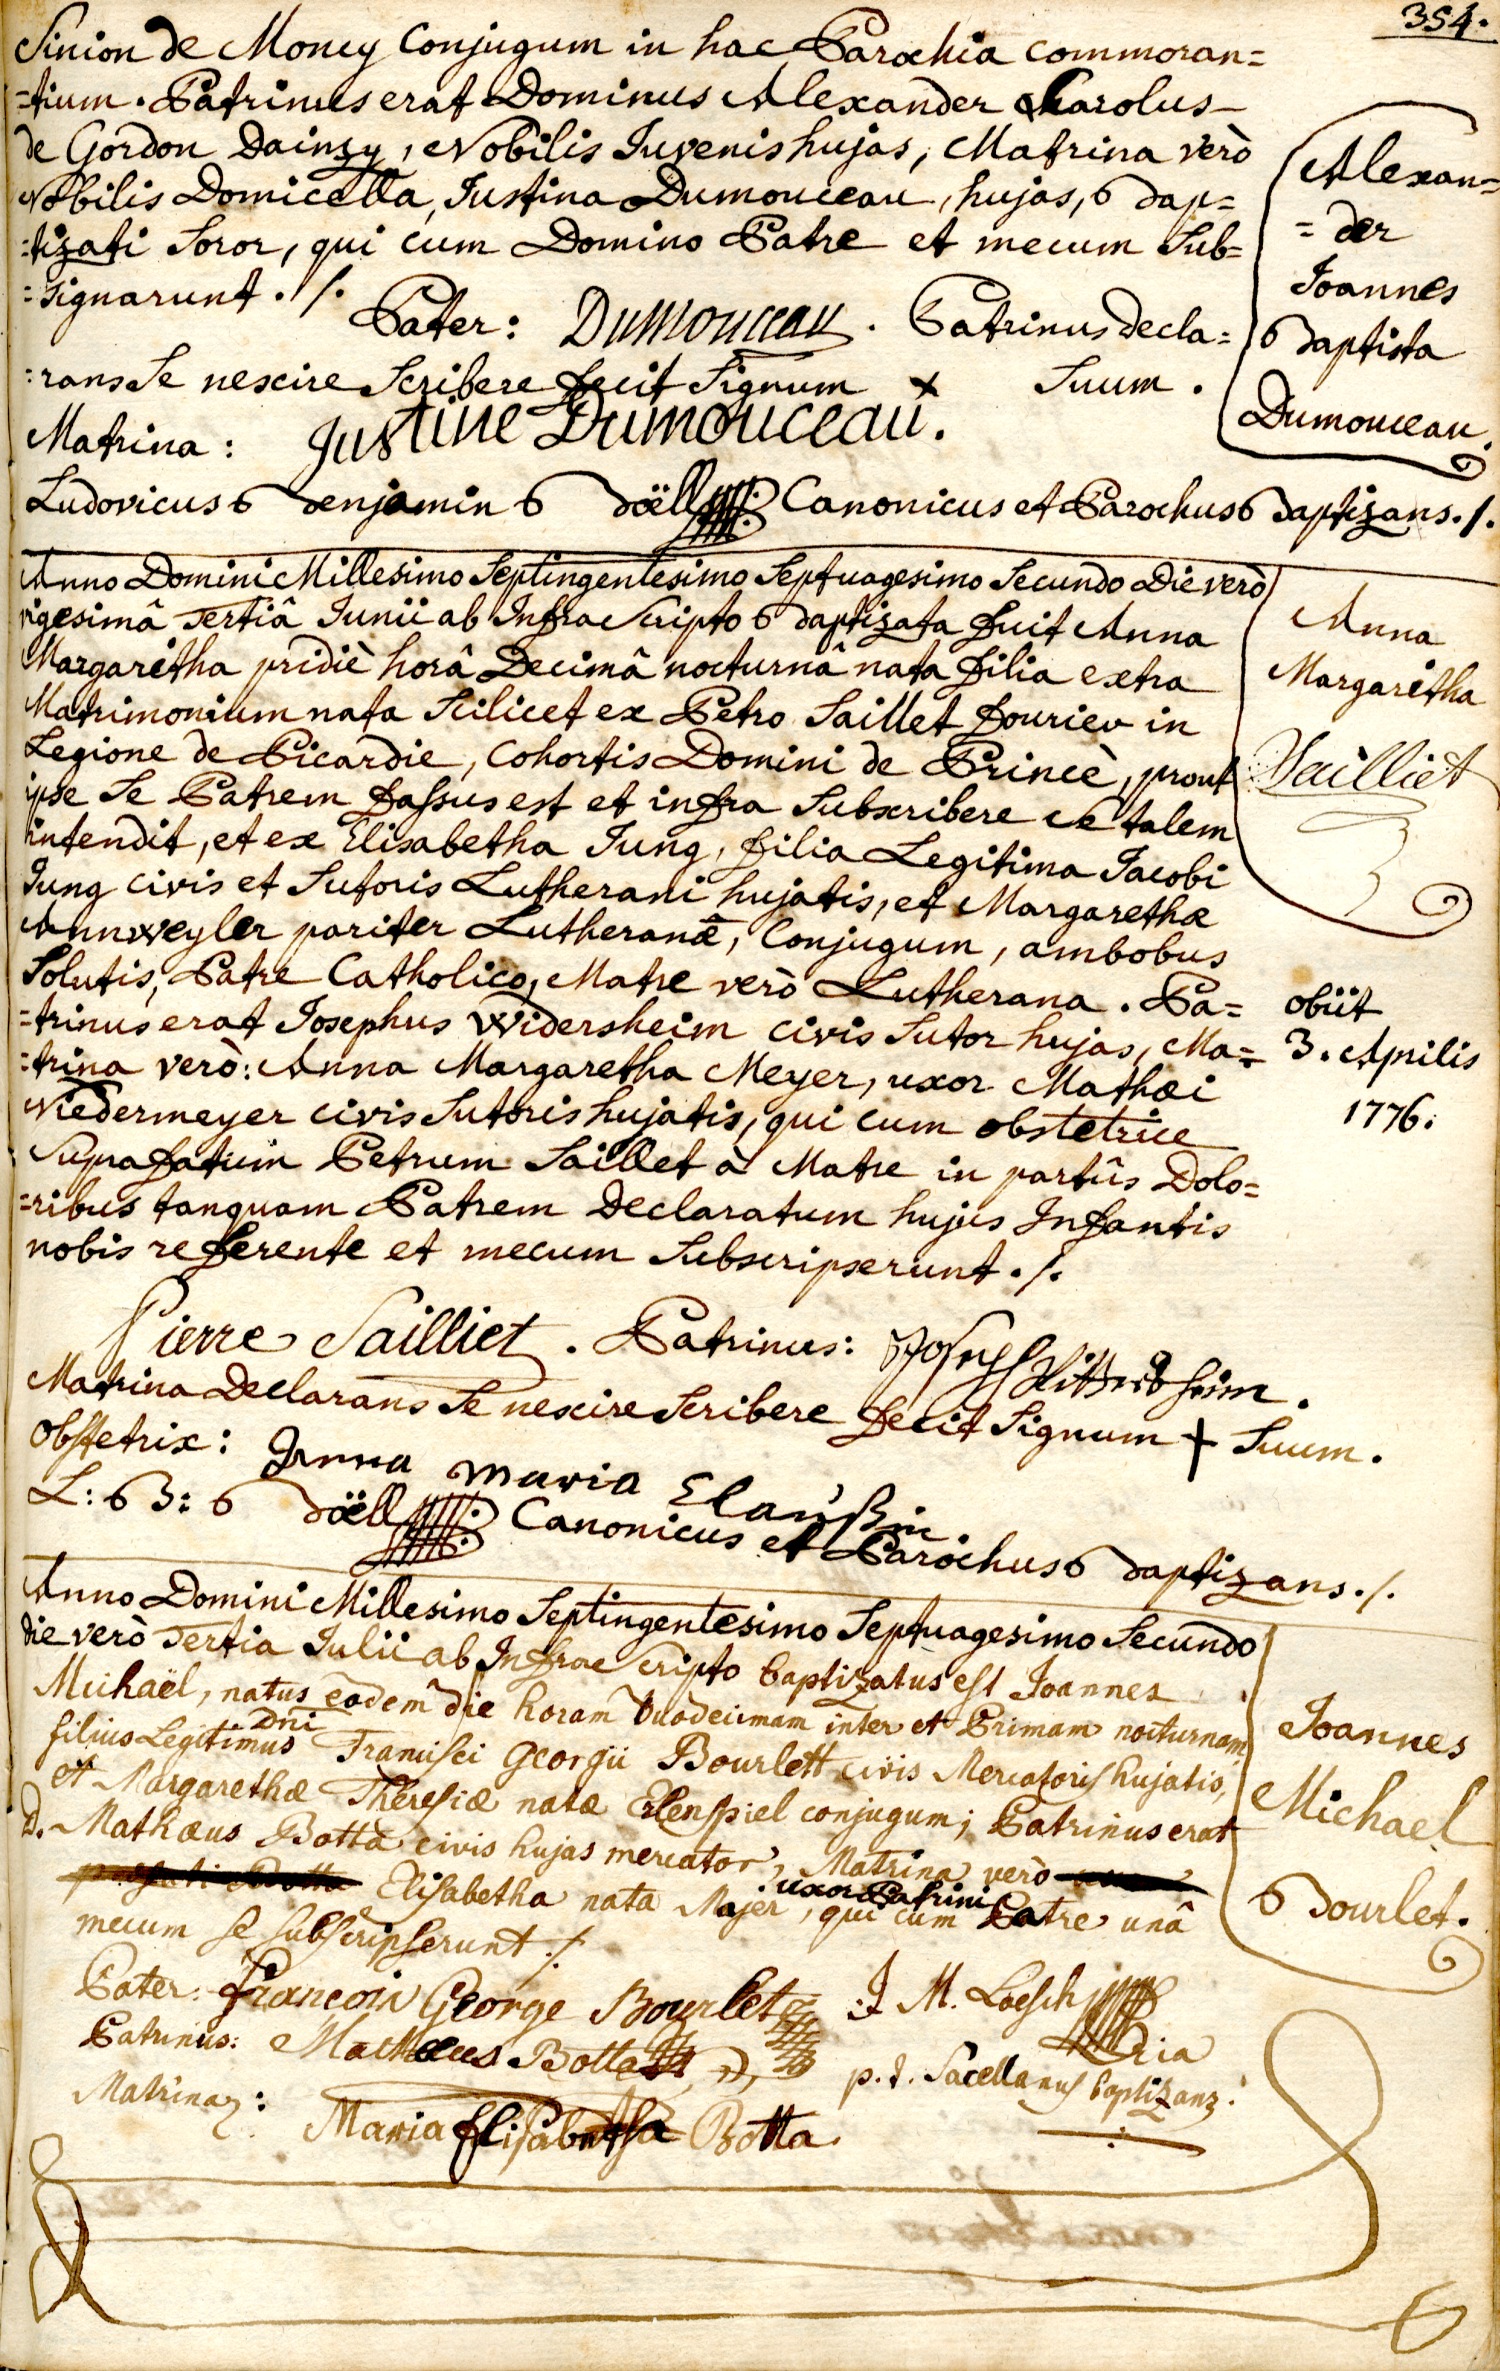 354.
Sinion de Money Conjugum in hac Parochia commoran=
=tium. Patrinus erat Dominus Alexander Carolus
de Gordon Dainzy, Nobilis Iuvenis hujas, Matrina verò
Nobilis Domicella, Iustina Dumouceau, hujas, Bap=
=tizati Soror, qui cum Domino Patre et mecum Sub=
=signarunt ./.
Alexan=
=der
Ioannes
Baptista
Dumouceau.
Pater: Dumouceau. Patrinus decla=
=rans Se nescire Scribere fecit Signum x Suum.
Matrina: Justine Dumouceau.
Ludovicus Benjamin Böell Canonicus et Parochus Baptizans ./.
Anno Domini Millesimo Septingentesimo Septuagesimo Secundo Die verò
vigesimâ Tertiâ Iunii ab Infrascripto Baptizata fuit Anna
Margaretha pridiè horâ Decimâ nocturnâ nata filia extra
Matrimonium nata Scilicet ex Petro Saillet fourier in
Legione de Picardie, Cohortis Domini de Princè, prout
ipse Se Patrem fassus est et infra Subscribere Se talem
intendit, et ex Elisabetha Iung, filia Legitima Iacobi
Iung civis et Sutoris Lutherani hujatis, et Margarethæ
Annweyler pariter Lutheranæ, Conjugum, ambobus
Solutis, Patre Catholico, Matre verò Lutherana. Pa=
=trinus erat Iosephus Widersheim civis Sutor hujas, Ma=
=trina verò: Anna Margaretha Meyer, uxor Mathæi
Niedermeyer civis Sutoris hujatis, qui cum obstetrice
Suprafatum Petrum Saillet à Matre in partûs Dolo=
=ribus tanquam Patrem Declaratum hujus Infantis
nobis referente et mecum Subscripserunt ./.
Anna
Margaretha
Sailliet
obiit
3. Aprilis
1776.
Pierre Sailliet. Patrinus: Joseph
Matrina Declarans Se nescire Scribere fecit Signum + Suum.
Obstetrix: Anna Maria
L: B: Böell Canonicus et Parochus Baptizans ./.
Anno Domini Millesimo Septingentesimo Septuagesimo Secundo
die verò Tertia Iulii ab Infrascripto baptizatus est Ioannes
Michaël, natus eodem die horam duodecimam inter et Primam nocturnam
filius Legitimus Dni Francisci Georgii Bourlett civis Mercatoris hujatis,
et Margarethæ Theresiæ natæ Elenspiel conjugum; Patrinus erat
D. Mathæus Botta civis hujas mercator, Matrina verò
Elisabetha nata Majer uxor Patrini, qui cum Patre unâ
mecum se subscripserunt ./.
Ioannes
Michael
Bourlet.
Pater: francois George Bourlet
Patrinus: Mathæus Botta
Matrina: Maria Elisabetha Botta.
J M. Loesch
p.t. Sacellanus baptizans.